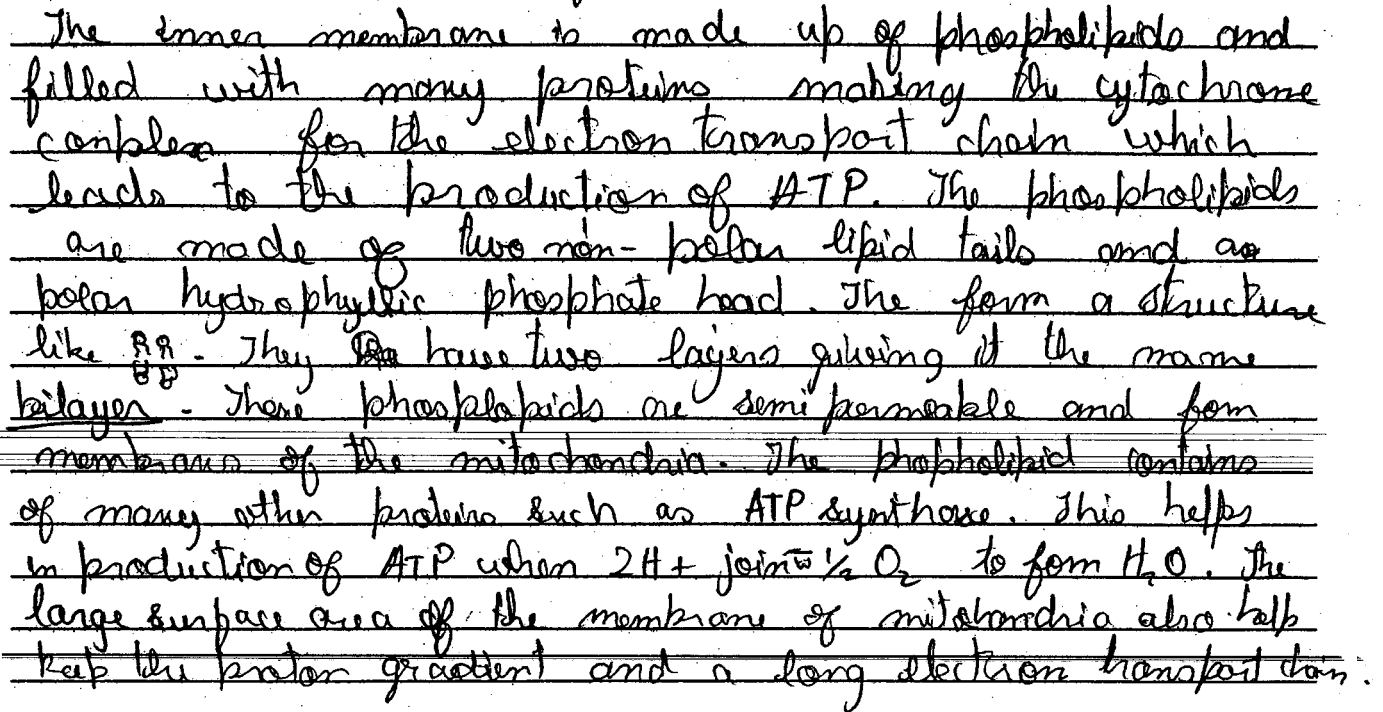 The inner membrane is made up of phospholipids and
filled with many proteins making the cytochrome
complex for the electron transport chain which
leads to the production of ATP. The phospholipids
are made of two non-polar lipid tails and a
polar hydrophyllic phosphate head. The form a structure
like . They have two layers giving it the name
bilayer. These phosplapids are semi permeable and form
membranes of the mitochondria. The phopholipid contains
of many other proteins such as ATP synthase. This helps
in production of ATP when 2H+ join w̄ 1/2 O2 to form H2O. The
large surface area of the membrane of mitohondria also help
keep the proton gradient and a long electron transport chain.